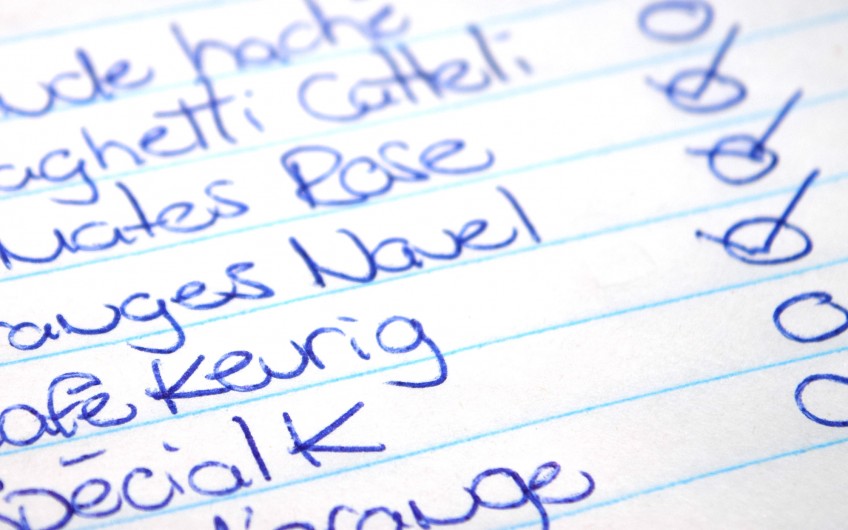 ude haché
aghetti Catteli
mates Rose
ranges Navel
afé Keurig
Spécial K
l'orange